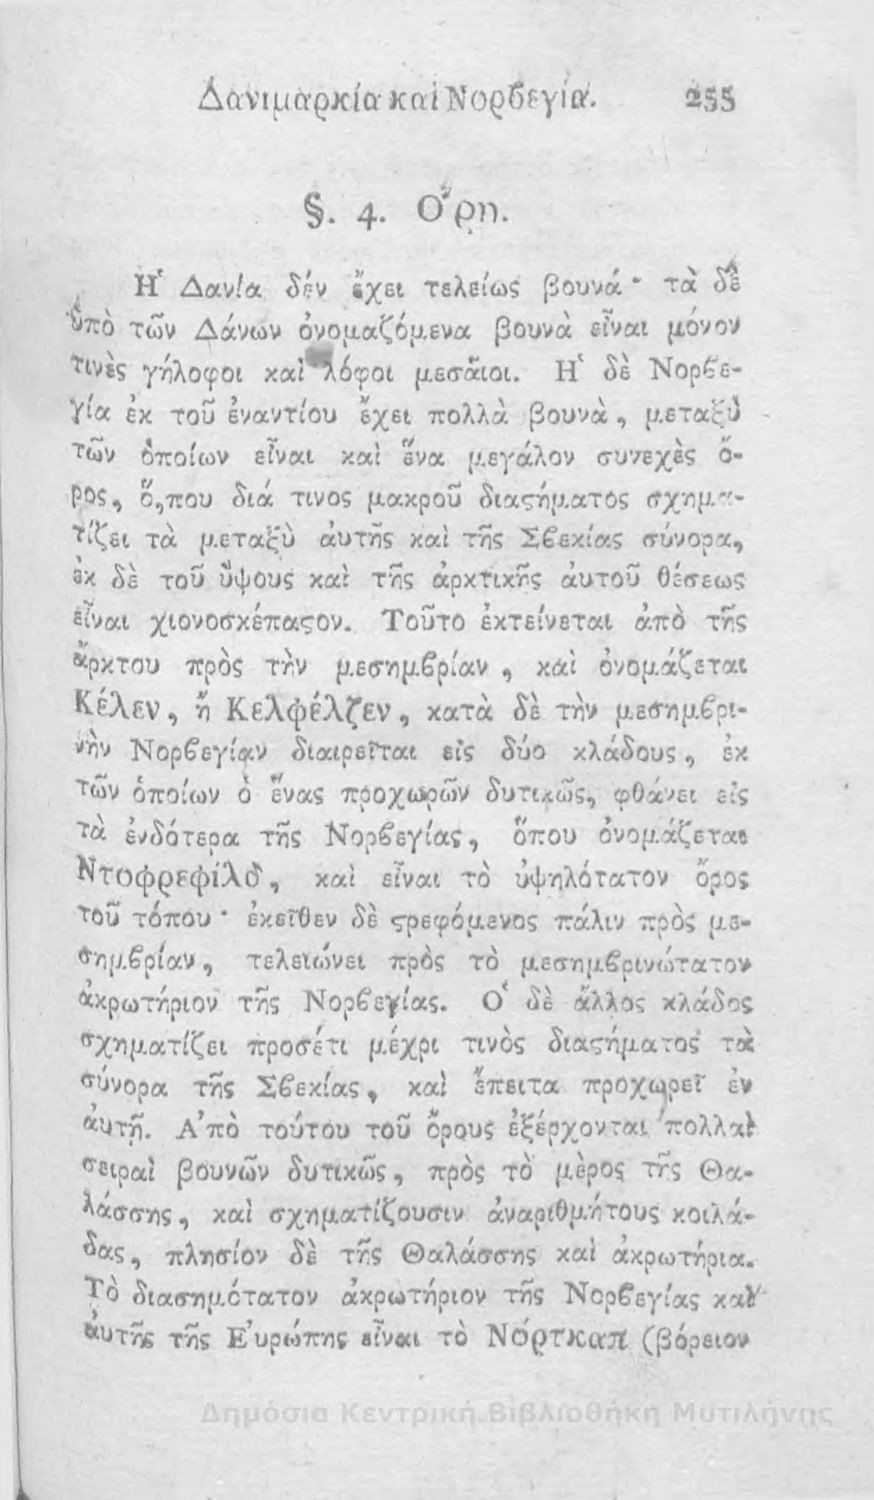 Δανιμαρκία καὶ Νορϐεγία. 255
§. 4. Ὄρη.
Ἡ Δανία δέν ἔχει τελείως βουνά· τὰ δὲ
ὑπὸ τῶν Δάνων ὀνομαζόμενα βουνὰ εἶναι μόνον
τινὲς γήλοφοι καὶ λόφοι μεσαῖοι. Ἡ δὲ Νορϐε-
γία ἐκ τοῦ ἐναντίου ἔχει πολλὰ βουνὰ, μεταξὺ
τῶν ὁποίων εἶναι καὶ ἕνα μεγάλον συνεχὲς ὄ-
ρος, ὅ,που διά τινος μακροῦ διαςήματος σχημα-
τίζει τὰ μεταξὺ ἀυτῆς καὶ τῆς Σϐεκίας σύνορα,
ἐκ δὲ τοῦ ὕψους καὶ τῆς ἀρκτικῆς ἀυτοῦ θέσεως
εἶναι χιονοσκέπαςον. Τοῦτο ἐκτείνεται ἀπὸ τῆς
ἄρκτου πρὸς τὴν μεσημϐρίαν, καὶ ὀνομάζεται
Κέλεν, ἤ Κελφέλζεν, κατὰ δὲ τὴν μεσημϐρι-
νὴν Νορϐεγίαν διαιρεῖται εἰς δύο κλάδους, ἐκ
τῶν ὁποίων ὁ ἕνας προχωρῶν δυτικῶς, φθάνει εἰς
τὰ ἐνδότερα τῆς Νορϐεγίας, ὅπου ὀνομάζεται
Ντοφρεφίλδ, καὶ εἶναι τὸ ὑψηλότατον ὄρος
τοῦ τόπου· ἐκεῖθεν δὲ ςρεφόμενος πάλιν πρὸς με-
σημϐρίαν, τελειώνει πρὸς τὸ μεσημϐρινώτατον
ἀκρωτήριον τῆς Νορϐεγίας. Ὁ δὲ ἄλλος κλάδος
σχηματίζει προσέτι μέχρι τινὸς διαςήματος τὰ
σύνορα τῆς Σϐεκίας, καὶ ἔπειτα προχωρεῖ ἐν
ἀυτῇ. Ἀπὸ τούτου τοῦ ὄρους ἐξέρχονται πολλαὶ
σειραὶ βουνῶν δυτικῶς, πρὸς τὸ μὲρος τῆς Θα-
λάσσης, καὶ σχηματίζουσιν ἀναριθμήτους κοιλά-
δας, πλησίον δὲ τῆς Θαλάσσης καὶ ἀκρωτήρια.
Τὸ διασημότατον ἀκρωτήριον τῆς Νορϐεγίας καὶ
ἀυτῆς τῆς Ἐυρώπης εἶναι τὸ Νόρτκαπ (βόρειον
Δημόσια Κεντρική Βιβλιοθήκη Μυτιλήνης